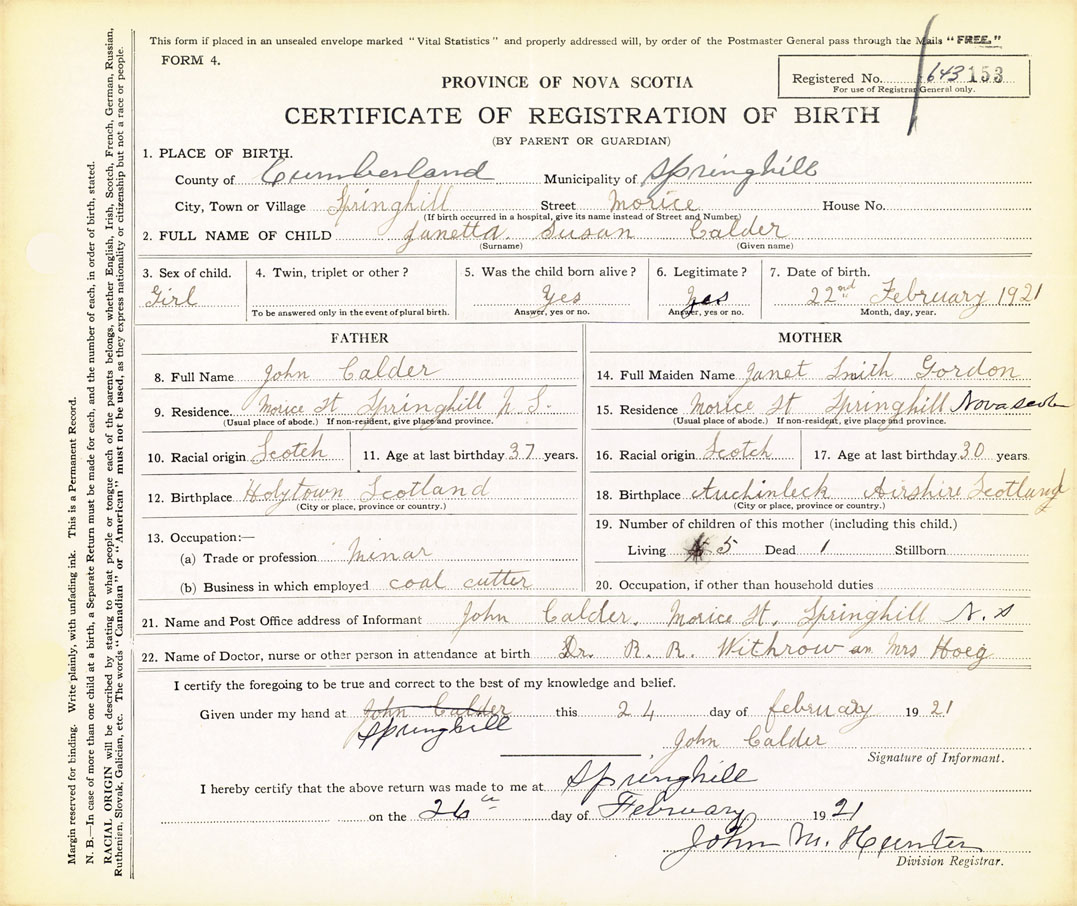 This form if placed in an unsealed envelope marked "Vital Statistics" and properly addressed will, by order of the Postmaster General pass through the Mails "FREE."
FORM 4.
Registered No. 643 153
For use of Registrar General only.
PROVINCE OF NOVA SCOTIA
CERTIFICATE OF REGISTRATION OF BIRTH
(BY PARENT OR GUARDIAN)
1. PLACE OF BIRTH.
County of Cumberland Municipality of Springhill
City, Town or Village Springhill Street Morice House No.
(If birth occurred in a hospital, give its name instead of Street and Number)
2. FULL NAME OF CHILD Janetta Susan Calder
(Surname) (Given name)
3. Sex of child. 4. Twin, triplet or other? 5. Was the child born alive? 6. Legitimate? 7. Date of birth.
Girl Yes Yes 22nd February 1921
To be answered only in the event of plural birth. Answer, yes or no. Answer, yes or no. Month, day, year.
FATHER
8. Full Name John Calder
9. Residence Morice St Springhill N. S.
(Usual place of abode.) If non-resident, give place and province.
10. Racial origin Scotch 11. Age at last birthday 37 years.
12. Birthplace Holytown Scotland
(City or place, province or country.)
13. Occupation:—
(a) Trade or profession Minar
(b) Business in which employed coal cutter
MOTHER
14. Full Maiden Name Janet Smith Gordon
15. Residence Morice St Springhill Nova scotia
(Usual place of abode.) If non-resident, give place and province.
16. Racial origin Scotch 17. Age at last birthday 30 years.
18. Birthplace Auchinleck Airshire Scotland
(City or place, province or country.)
19. Number of children of this mother (including this child.)
Living 5 Dead 1 Stillborn
20. Occupation, if other than household duties
21. Name and Post Office address of Informant John Calder. Morice St. Springhill N. S
22. Name of Doctor, nurse or other person in attendance at birth Dr. R. R. Withrow an Mrs Hoeg
I certify the foregoing to be true and correct to the best of my knowledge and belief.
Given under my hand at John Calder this 24 day of february 1921
Springhill
John Calder
Signature of Informant.
I hereby certify that the above return was made to me at Springhill
on the 26 day of February 1921
John M. Hunter
Division Registrar.
Margin reserved for binding. Write plainly, with unfading ink. This is a Permanent Record.
N. B.—In case of more than one child at a birth, a Separate Return must be made for each, and the number of each, in order of birth, stated.
RACIAL ORIGIN will be described by stating to what people or tongue each of the parents belongs, whether English, Irish, Scotch, French, German, Russian,
Ruthenian, Slovak, Galician, etc. The words "Canadian" or "American" must not be used, as they express nationality or citizenship but not a race or people.